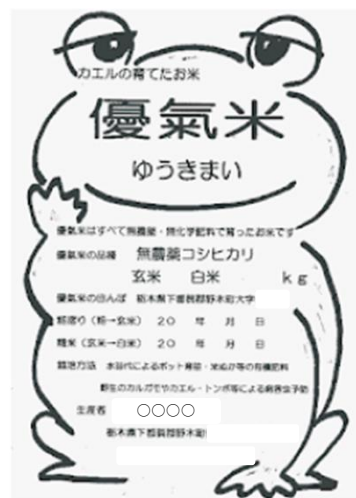 カエルの育てたお米
優氣米
ゆうきまい
優氣米はすべて無農薬・無化学肥料で育ったお米です
優氣米の品種 無農薬コシヒカリ
玄米 白米 kg
優氣米の田んぼ 栃木県下都賀郡野木町大字
籾摺り(籾→玄米) 20 年 月 日
精米(玄米→白米) 20 年 月 日
栽培方法 水苗代によるポット育苗・米ぬか等の有機肥料
野生のカルガモやカエル・トンボ等による病害虫予防
生産者 ○○○○
栃木県下都賀郡野木町